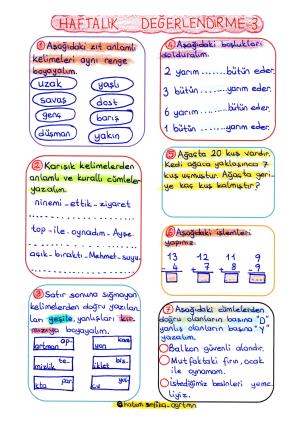 HAFTALIK DEĞERLENDİRME-3
① Aşağıdaki zıt anlamlı
kelimeleri aynı renge
boyayalım.
uzak yaşlı
savaş dost
genç barış
düşman yakın
② Karışık kelimelerden
anlamlı ve kurallı cümleler
yazalım.
ninemi-ettik-ziyaret
top-ile-oynadım-Ayşe
aşık-bıraktı-Mehmet-suyu
③ Satır sonuna sığmayan
kelimelerden doğru yazılan-
ları yeşile, yanlışları kır-
mızıya boyayalım.
ap-
artman
kam
yon
mizlik te-
iklet bis-
par
kta
yol-
cu
④ Aşağıdaki boşlukları
dolduralım.
2 yarım .......bütün eder.
3 bütün .......yarım eder.
6 yarım .......bütün eder
1 bütün .......yarım eder.
⑤ Ağaçta 20 kuş vardır.
Kedi ağaca yaklaşınca 7
kuş uçmuştur. Ağaçta geri-
ye kaç kuş kalmıştır?
⑥ Aşağıdaki işlemleri
yapınız.
13 12 11 9
- 4 + 7 - 8 - 9
⑦ Aşağıdaki cümlelerden
doğru olanların başına "D"
yanlış olanların başına "Y"
yazalım.
Balkon güvenli alandır.
Mutfaktaki fırın, ocak
ile oynamam.
İstediğimiz besinleri yeme
liyiz.